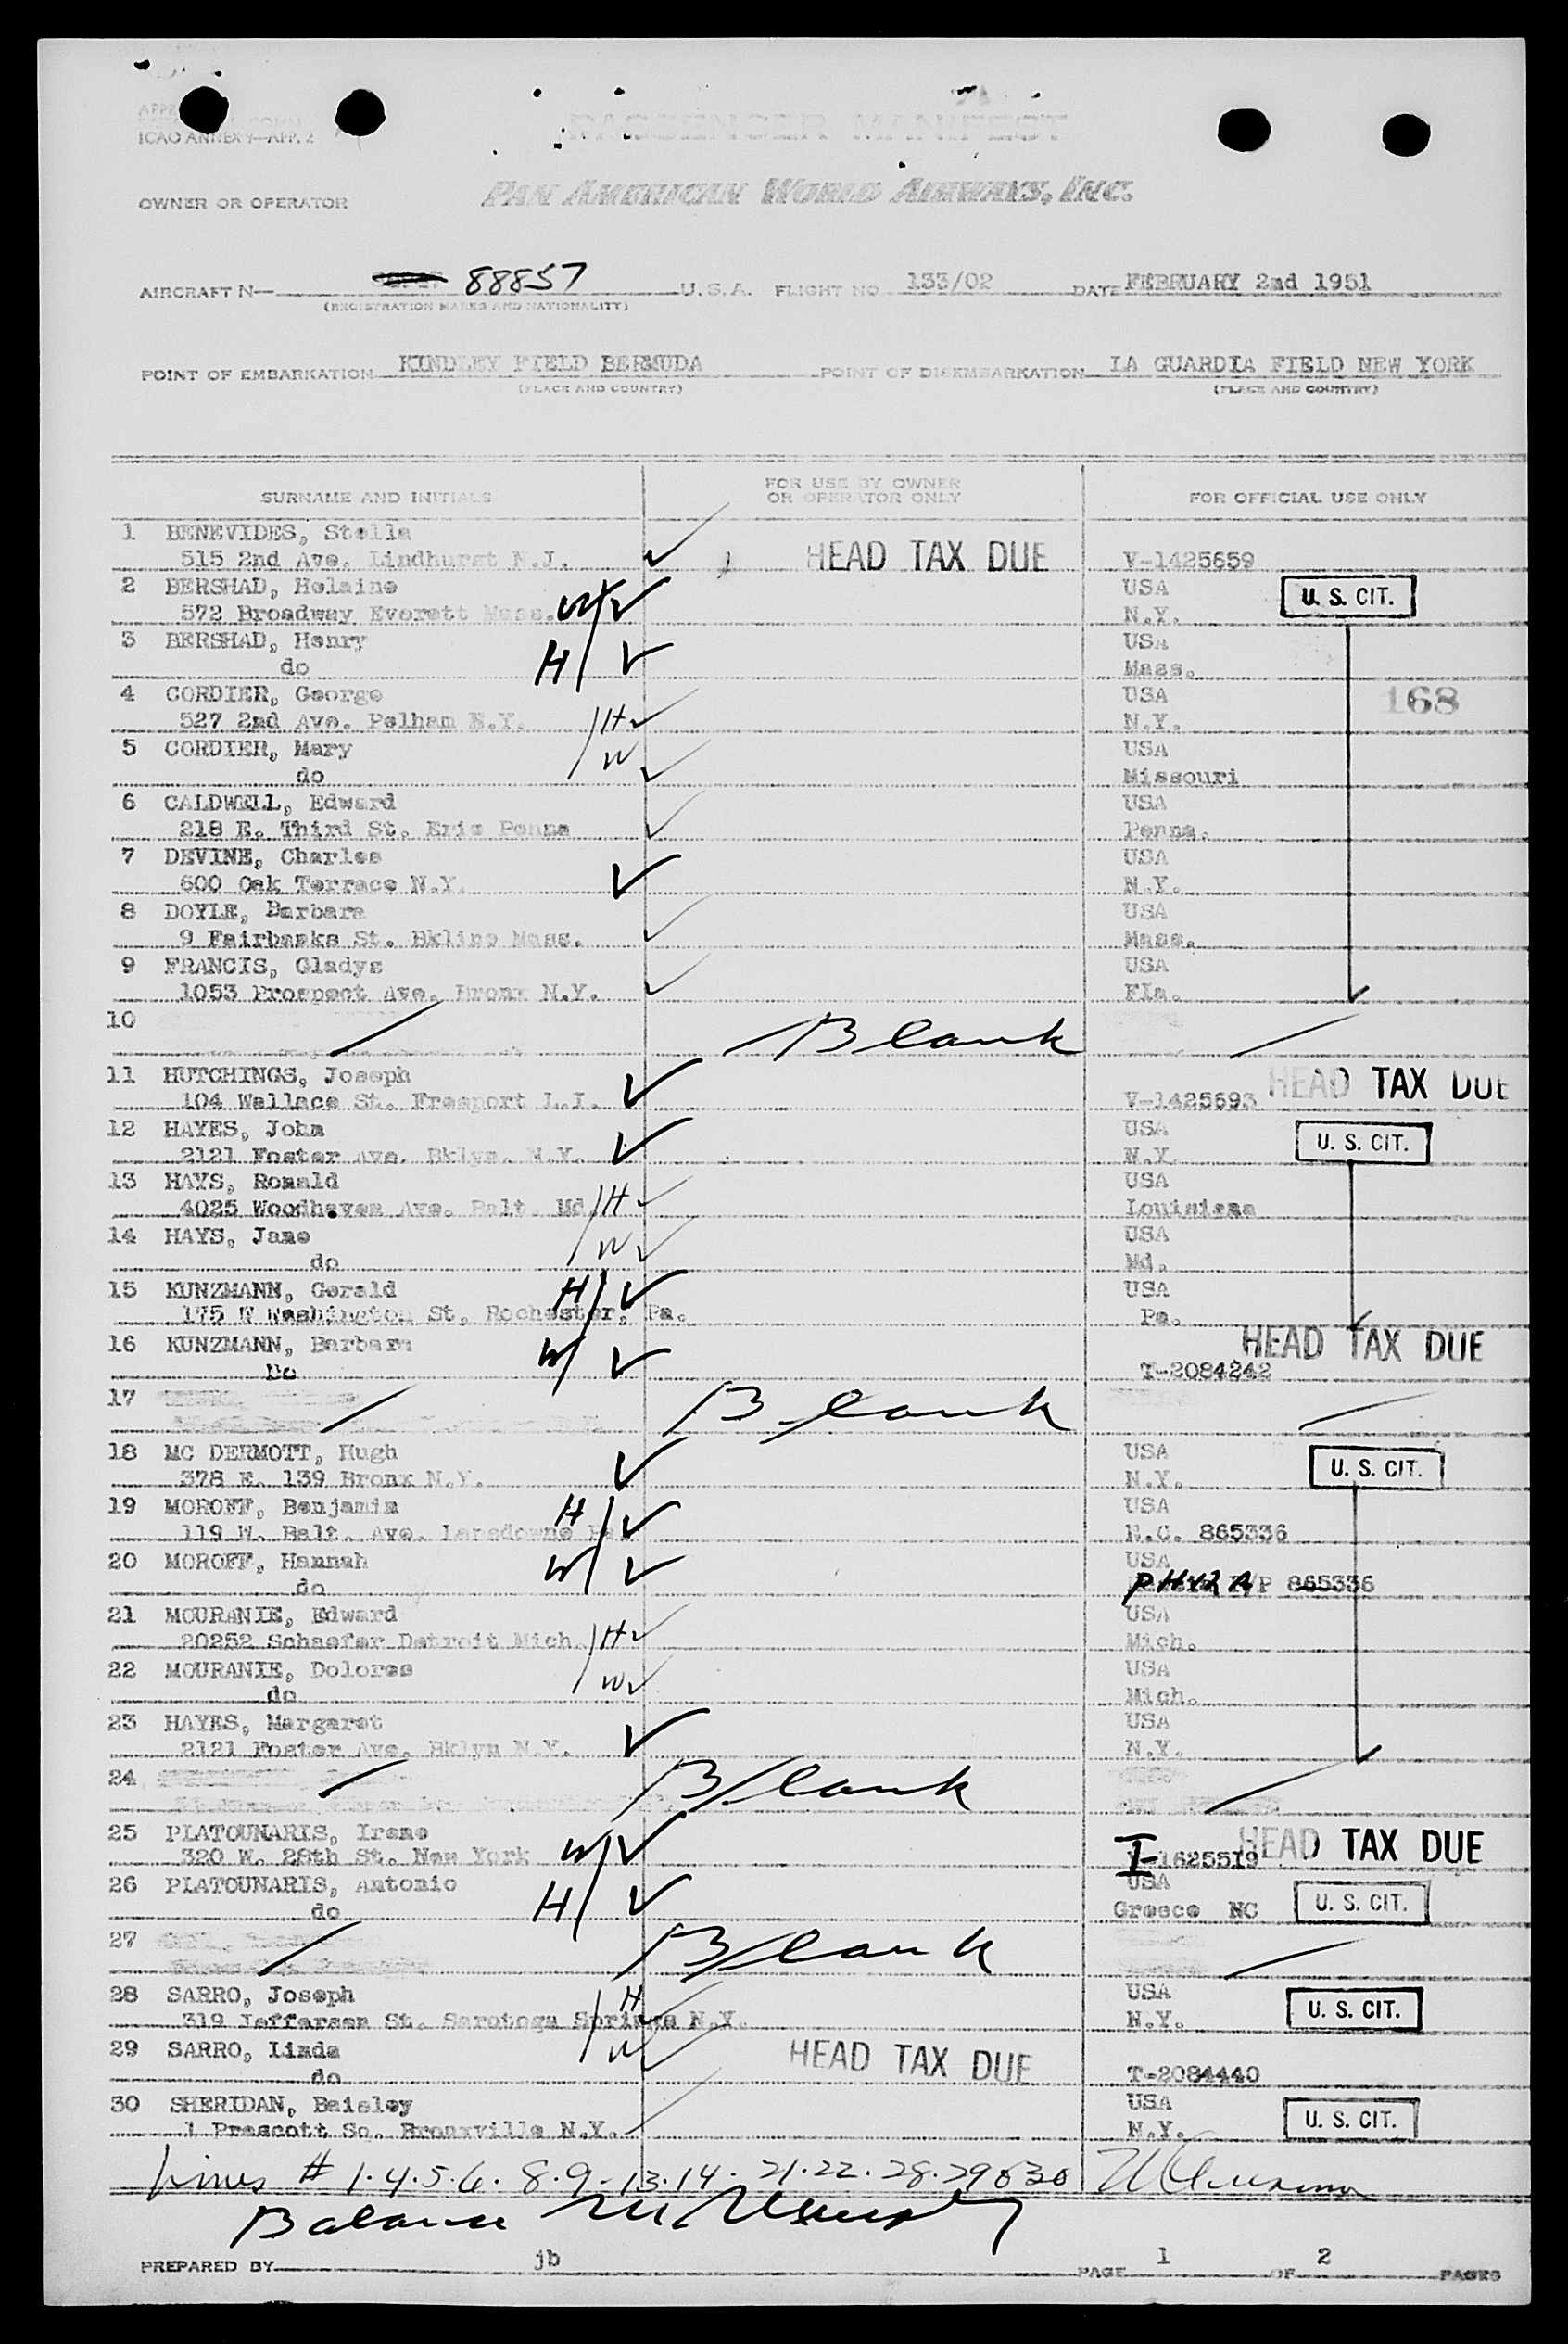 ICAO ANNEX 9—APP. 2
PASSENGER MANIFEST
OWNER OR OPERATOR
PAN AMERICAN WORLD AIRWAYS, INC.
AIRCRAFT N— 88857 U.S.A. FLIGHT NO 133/02 DATE FEBRUARY 2nd 1951
(REGISTRATION MARKS AND NATIONALITY)
POINT OF EMBARKATION KINDLEY FIELD BERMUDA POINT OF DISEMBARKATION LA GUARDIA FIELD NEW YORK
(PLACE AND COUNTRY) (PLACE AND COUNTRY)
SURNAME AND INITIALS FOR USE BY OWNER OR OPERATOR ONLY FOR OFFICIAL USE ONLY
1 BENEVIDES, Stella
515 2nd Ave. Lindhurst N.J. ✓ HEAD TAX DUE V-1425659
2 BERSHAD, Helaine USA U. S. CIT.
572 Broadway Everett Mass. W/✓ N.Y.
3 BERSHAD, Henry USA
do H/ ✓ Mass.
4 CORDIER, George USA 168
527 2nd Ave. Pelham N.Y. /H✓ N.Y.
5 CORDIER, Mary USA
do /W ✓ Missouri
6 CALDWELL, Edward USA
218 E. Third St. Erie Penna ✓ Penna.
7 DEVINE, Charles USA
600 Oak Terrace N.Y. ✓ N.Y.
8 DOYLE, Barbara USA
9 Fairbanks St. Bkline Mass. ✓ Mass.
9 FRANCIS, Gladys USA
1053 Prospect Ave. Bronx N.Y. ✓ Fla.
10 / Blank /
11 HUTCHINGS, Joseph HEAD TAX DUE
104 Wallace St. Freeport L.I. ✓ V-1425693
12 HAYES, John USA U. S. CIT.
2121 Foster Ave. Bklyn. N.Y. ✓ N.Y.
13 HAYS, Ronald USA
4025 Woodhaven Ave. Balt. Md. /H ✓ Louisiana
14 HAYS, Jane USA
do /W ✓ Md.
15 KUNZMANN, Gerald H/ ✓ USA
175 W Washington St, Rochester, Pa. Pa.
16 KUNZMANN, Barbara HEAD TAX DUE
Do W/ ✓ T-2084242
17 / Blank /
18 MC DERMOTT, Hugh USA U. S. CIT.
378 E. 139 Bronx N.Y. ✓ N.Y.
19 MOROFF, Benjamin H/ ✓ USA
119 W. Balt. Ave. Lansdowne Pa N.C. 865336
20 MOROFF, Hannah W/ ✓ USA
do PHILA P/P 865336
21 MOURANIE, Edward USA
20252 Schaefer Detroit Mich. /H✓ Mich.
22 MOURANIE, Dolores USA
do /W✓ Mich.
23 HAYES, Margaret USA
2121 Foster Ave. Bklyn N.Y. ✓ N.Y.
24 / Blank /
25 PLATOUNARIS, Irene HEAD TAX DUE
320 W. 28th St. New York W/✓ I-1625519
26 PLATOUNARIS, Antonio USA U. S. CIT.
do H/ ✓ Greece NC
27 / Blank /
28 SARRO, Joseph /H ✓ USA U. S. CIT.
319 Jefferson St. Sarotoga Springs N.Y. N.Y.
29 SARRO, Linda /W✓ HEAD TAX DUE
do T-2084440
30 SHERIDAN, Baisley USA U. S. CIT.
1 Prescott Sq. Bronxville N.Y. N.Y.
Lines # 1.4.5.6. 8.9.-13.14. 21.22. 28.29&30
Balance
PREPARED BY jb PAGE 1 OF 2 PAGES